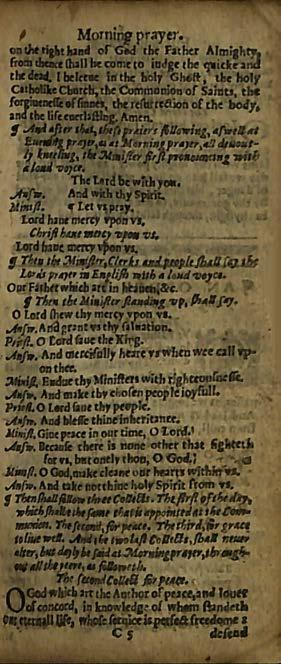 Morning prayer.
on the right hand of God the Father Almighty,
from thence shall he come to iudge the quicke and
the dead. I beleeue in the holy Ghost, the holy
Catholike Church, the Communion of Saints, the
forgiuenesse of sinnes, the resurrection of the body,
and the life euerlasting, Amen.
¶ And after that, these praiers following, aswell at
Euening prayer, as at Morning prayer, all deuout-
ly kneeling, the Minister first pronouncing with
a loud voyce.
The Lord be with you.
Answ. And with thy Spirit.
Minist. ¶ Let vs pray.
Lord haue mercy vpon vs.
Christ haue mercy vpon vs.
Lord haue mercy vpon vs.
¶ Then the Minister, Clerks and people shall say the
Lords prayer in English with a loud voyce.
Our Father which art in heauen, &c.
¶ Then the Minister standing vp, shall say.
O Lord shew thy mercy vpon vs.
Answ. And grant vs thy saluation.
Priest. O Lord saue the King.
Answ. And mercifully heare vs when wee call vp-
on thee.
Minist. Endue thy Ministers with righteousnesse.
Answ. And make thy chosen people ioyfull.
Priest. O Lord saue thy people.
Answ. And blesse thine inheritance.
Minist. Giue peace in our time, O Lord.
Answ. Because there is none other that fighteth
for vs, but onely thou, O God.
Minist. O God, make cleane our hearts within vs.
Answ. And take not thine holy Spirit from vs.
¶ Then shall follow three Collects. The first of the day,
which shall be the same that is appointed at the Com-
munion. The second, for peace. The third, for grace
to liue well. And the two last Collects, shall neuer
alter, but dayly be said at Morning prayer, through-
out all the yeere, as followeth.
The second Collect for peace.
O God which art the Author of peace, and louer
of concord, in knowledge of whom standeth
our eternall life, whose seruice is perfect freedome:
C 5 defend